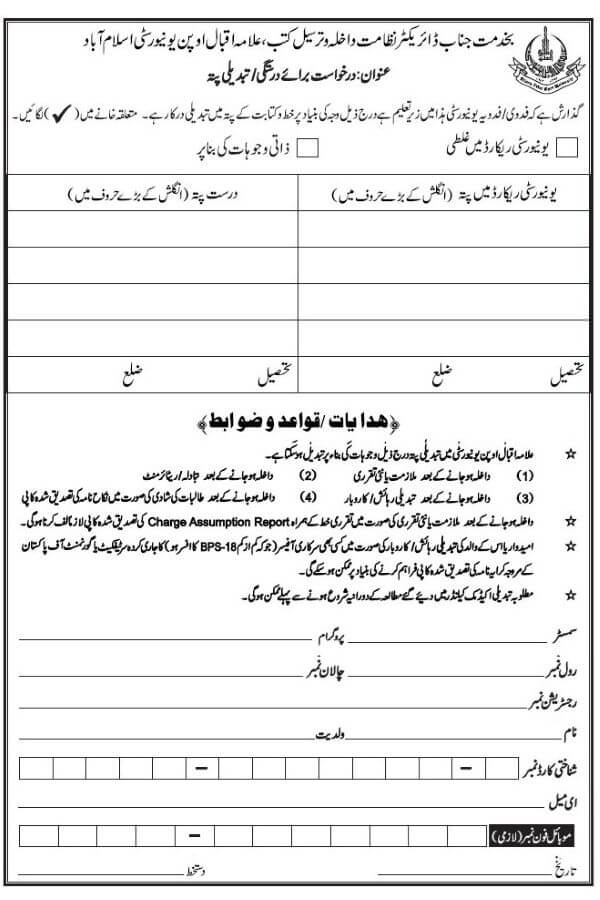 بخدمت جناب ڈائریکٹر نظامت داخلہ و ترسیل کتب، علامہ اقبال اوپن یونیورسٹی اسلام آباد
عنوان: درخواست برائے درستگی/تبدیلی پتہ
گذارش ہے کہ فدوی/فدویہ یونیورسٹی ہذا میں زیر تعلیم ہے درج ذیل وجہ کی بنیاد پر خط و کتابت کے پتہ میں تبدیلی درکار ہے۔ متعلقہ خانے میں (✓) لگائیں۔
یونیورسٹی ریکارڈ میں غلطی ذاتی وجوہات کی بنا پر
یونیورسٹی ریکارڈ میں پتہ (انگلش کے بڑے حروف میں) درست پتہ (انگلش کے بڑے حروف میں)
تحصیل ضلع تحصیل ضلع
﴿ھدایات/قواعد و ضوابط﴾
☆ علامہ اقبال اوپن یونیورسٹی میں تبدیلی پتہ درج ذیل وجوہات کی بناء پر تبدیل ہو سکتا ہے۔
(1) داخلہ ہو جانے کے بعد ملازمت یا نئی تقرری (2) داخلہ ہو جانے کے بعد تبادلہ/ریٹائرمنٹ
(3) داخلہ ہو جانے کے بعد تبدیلی رہائش/کاروبار (4) داخلہ ہو جانے کے بعد طالبات کی شادی کی صورت میں نکاح نامہ کی تصدیق شدہ کاپی
☆ داخلہ ہو جانے کے بعد ملازمت یا نئی تقرری کی صورت میں تقرری خط کے ہمراہ Charge Assumption Report کی تصدیق شدہ کاپی لازماً لف کرنا ہو گی۔
☆ امیدوار یا اس کے والد کی تبدیلی رہائش/کاروبار کی صورت میں کسی بھی سرکاری آفیسر (جو کہ کم از کم BPS-18 کا افسر ہو) کا جاری کردہ سرٹیفکیٹ یا گورنمنٹ آف پاکستان
کے مروجہ کرایہ نامہ کی تصدیق شدہ کاپی فراہم کرنے کی بنیاد پر ممکن ہو سکے گی۔
☆ مطلوبہ تبدیلی اکیڈمک کیلنڈر میں دیئے گئے مطالعہ کے دورانیہ شروع ہونے سے پہلے ممکن ہو گی۔
سمسٹر پروگرام
رول نمبر چالان نمبر
رجسٹریشن نمبر
نام ولدیت
شناختی کارڈ نمبر – –
ای میل
موبائل فون نمبر (لازمی) –
تاریخ دستخط